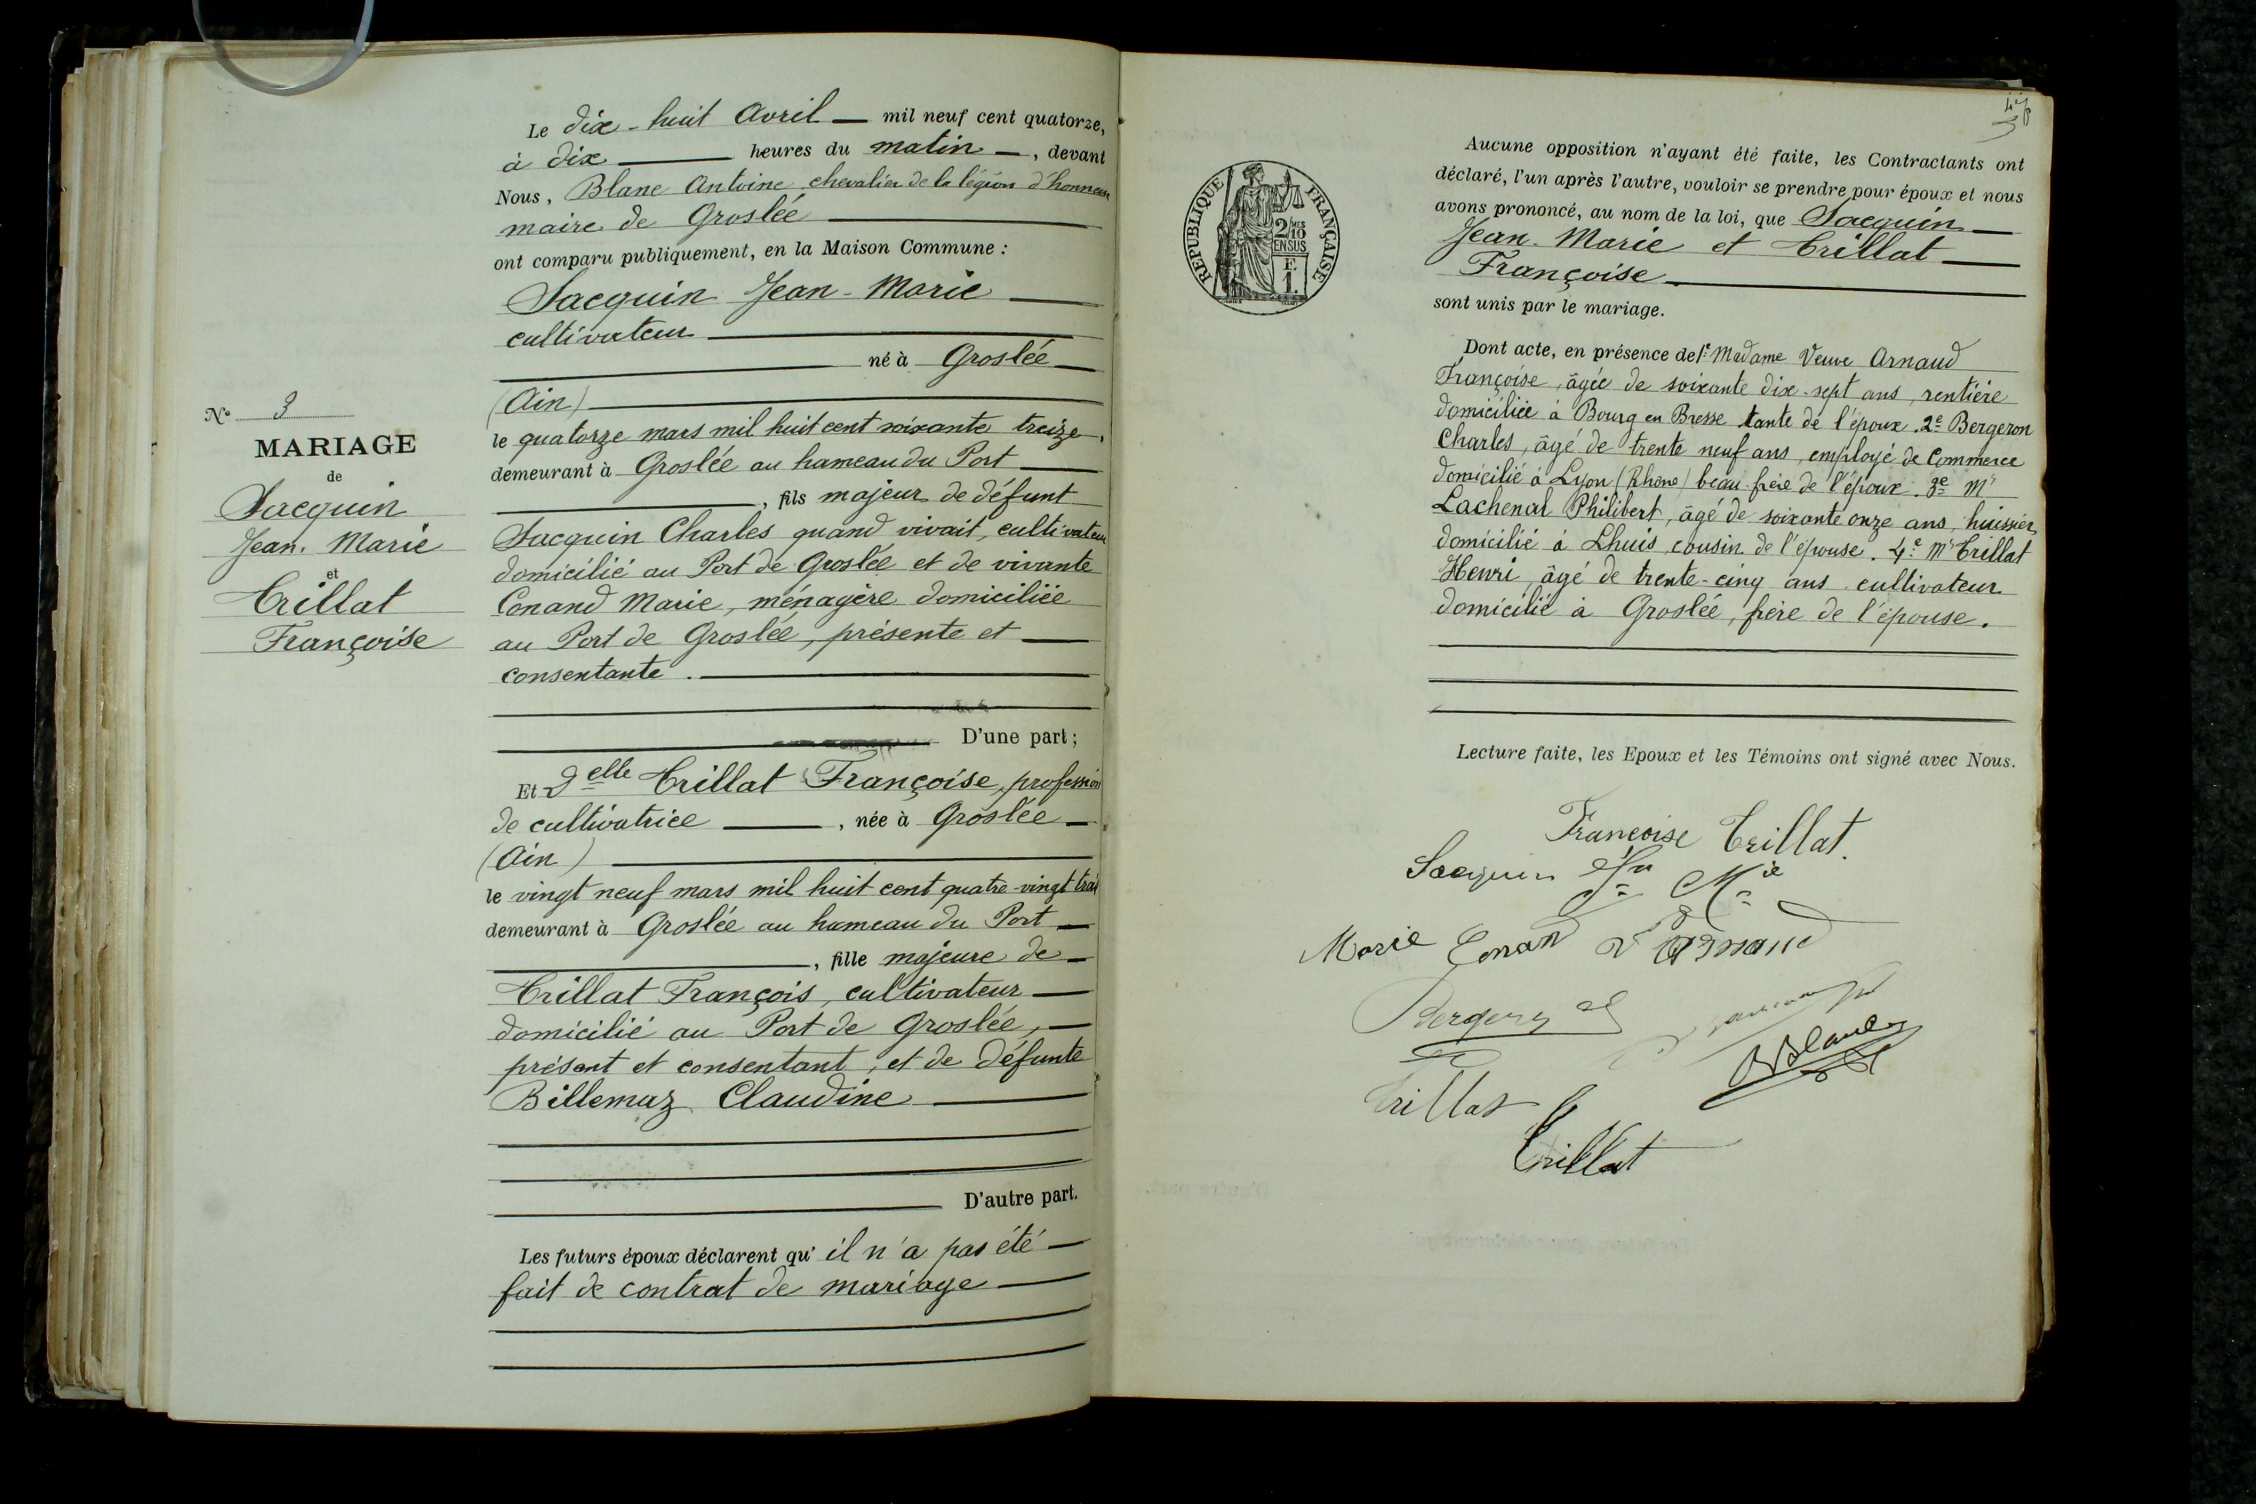 Le dix-huit Avril — mil neuf cent quatorze,
à dix — heures du matin —, devant
Nous, Blanc Antoine chevalier de la légion d'honneur
maire de Groslée
ont comparu publiquement, en la Maison Commune :
Sacquin Jean-Marie
cultivateur
né à Groslée
(Ain)
le quatorze mars mil huit cent soixante treize,
demeurant à Groslée au hameau du Port
, fils majeur de défunt
Sacquin Charles quand vivait, cultivateur
domicilié au Port de Groslée et de vivante
Conand Marie, ménagère domiciliée
au Port de Groslée, présente et
consentante.
D'une part ;
Et Delle Trillat Françoise, profession
de cultivatrice —, née à Groslée
(Ain)
le vingt neuf mars mil huit cent quatre-vingt trois
demeurant à Groslée au hameau du Port
, fille majeure de
Trillat François, cultivateur
domicilié au Port de Groslée,
présent et consentant, et de défunte
Billemaz Claudine
D'autre part.
Les futurs époux déclarent qu'il n'a pas été
fait de contrat de mariage
N° 3
MARIAGE
de
Sacquin
Jean-Marie
et
Trillat
Françoise
RÉPUBLIQUE FRANÇAISE
2/10MES
EN SUS
F.
1.
Aucune opposition n'ayant été faite, les Contractants ont
déclaré, l'un après l'autre, vouloir se prendre pour époux et nous
avons prononcé, au nom de la loi, que Sacquin
Jean-Marie et Trillat
Françoise
sont unis par le mariage.
Dont acte, en présence de 1e Madame Veuve Arnaud
Françoise, âgée de soixante dix-sept ans, rentière
domiciliée à Bourg en Bresse tante de l'époux. 2e Bergeron
Charles, âgé de trente neuf ans, employé de Commerce
domicilié à Lyon (Rhône) beau-frère de l'époux. 3e Mr
Lachenal Philibert, âgé de soixante onze ans, huissier,
domicilié à Lhuis, cousin de l'épouse. 4e Mr Trillat
Henri, âgé de trente-cinq ans cultivateur
domicilié à Groslée, frère de l'épouse.
Lecture faite, les Epoux et les Témoins ont signé avec Nous.
Françoise Trillat.
Sacquin Jn Mie
Marie Conand Ve Arnaud
Bergeron
ABlanc
Trillat
Trillat